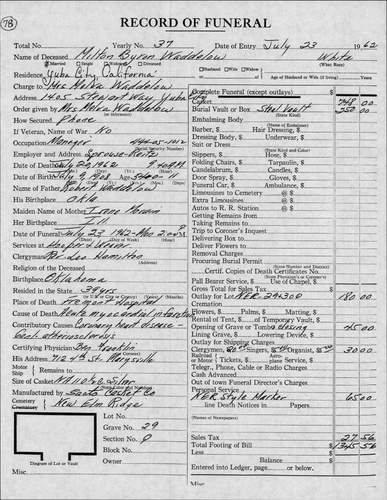 78
RECORD OF FUNERAL
Total No. Yearly No. 37 Date of Entry July 23 1962
Name of Deceased Milton Byron Waddelow White
Married Single Widowed Divorced Husband Wife Widow (What Race)
Residence Yuba City California Age of Husband or Wife (if living) Years
Charge to Mrs Melva Waddelow
Address 1405 Stewart Way, Yuba City
Order given by Mrs Melva Waddelow
How Secured Phone
If Veteran, Name of War No
Occupation Manager
(Social Security Number)
Employer and Address Sprouse-Reitz
Date of Death July 20, 1962
Date of Birth 1908 Age 54-0-11
Name of Father Robert Waddelow
His Birthplace Okla
Maiden Name of Mother
Her Birthplace Ill
Date of Funeral July 23 1962 - Mon. 2:00 P M
(Date) (Day of Week) (Hour)
Services at
Clergyman Leo Hamilton
Religion of the Deceased
Birthplace Oklahoma
Resident in State 39 years
Place of Death Fremont Hospital
Cause of Death Acute myocardial infarction
Contributory Causes Coronary heart disease -
Certifying Physician Dr
His Address 712 4th St. Marysville
Motor Ship Remains to
Size of Casket
Manufactured by Casket Co
Cemetery Crematory New Elm Ridge
Lot No.
Grave No. 29
Section No.
Block No.
Owner
Diagram of Lot or Vault
Misc.
Complete Funeral (except outlays)
Casket 748 00
Burial Vault or Box Steel Vault 250 00
(State Kind)
Embalming Body
(Name of Embalmer)
Barber, $ Hair Dressing, $
Dressing Body, $ Underwear, $
Suit or Dress
(State Kind and Color)
Slippers, $ Hose, $
Folding Chairs, $ Tarpaulin, $
Candelabrum, $ Candles, $
Door Spray, $ Gloves, $
Funeral Car, $ Ambulance, $
Limousines to Cemetery @ $
Extra Limousines @ $
Autos to R. R. Station @ $
Getting Remains from
Taking Remains to
Trip to Coroner's Inquest
Delivering Box to
Deliver Flowers to
Removal Charges
Procuring Burial Permit
Certif. Copies of Death Certificates No.
Pall Bearer Service, $ Use of Chapel, $
Gross Total for Sales Tax
Outlay for Lot NER 29 300 180 00
Flowers, $ Palms, $ Matting, $
Rental of Tent, $ of Temporary Vault, $
Opening of Grave or Tomb closing 45 00
Lining Grave, $ Lowering Device, $
Outlay for Shipping Charges
Clergyman, Singers, Organist, $ 30 00
Railroad or Motor Tickets, $ Aeroplane Service, $
Telegr., Phone, Cable or Radio Charges
Cash Advanced
Out of town Funeral Director's Charges
Personal Service
NER Style Marker 65 00
line Death Notices in Papers
(Names of Newspapers)
Sales Tax 27 56
Total Footing of Bill 1345 56
Less
Balance
Entered into Ledger, page or below.
Misc.